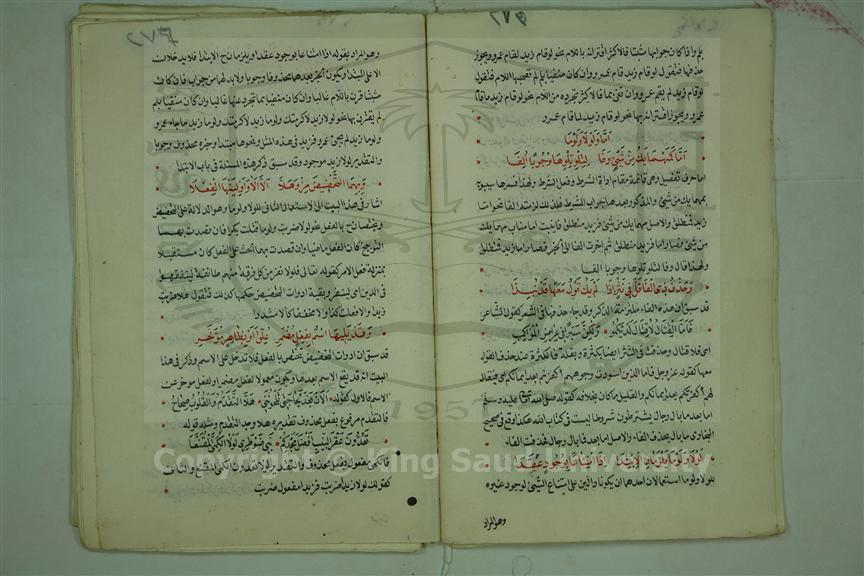 بلم واذا كان جوابها مثبتا فالاكثر اقترانه باللام نحو لو قام زيد لقام عمرو ويجوز
حذفها فتقول لو قام زيد قام عمرو وان كان منفيا بلم لم تصحبها اللام فتقول
لو قام زيد لم يقم عمرو وان نفى بما فالاكثر تجرده من اللام نحو لو قام زيد ما قام
عمرو ويجوز اقترانه بها نحو لو قام زيد لما قام عمرو
اما ولولا ولوما
اما كمهما يك من شئ وفا لتلو تلوها وجوبا الفا
اما حرف تفصيل وهى قائمة مقام اداة الشرط وفعل الشرط ولهذا فسرها سيبويه
بمهما يك من شئ والمذكور بعدها جواب الشرط فلذلك لزمته الفا نحو اما
زيد فمنطلق والاصل مهما يك من شئ فزيد منطلق فانيبت اما مناب مهما يك
من شئ فصار اما فزيد منطلق ثم اخرت الفا الى الخبر فصار اما زيد فمنطلق
ولهذا قال وفا لتلو تلوها وجوبا الفا
وحذف ذى الفا قل فى نثر اذا لم يك قول معها قد نبذا
قد سبق ان هذه الفاء ملتزمة الذكر وقد جاء حذفها فى الشعر كقول الشاعر
فاما القتال لا قتال لديكم ولكن سيرا فى عراض المواكب
اى فلا قتال وحذفت فى النثر ايضا بكثرة وبقلة فالكثرة عند حذف القول
معها كقوله عز وجل فاما الذين اسودت وجوههم اكفرتم بعد ايمانكم اى فيقال
لهم اكفرتم بعد ايمانكم والقليل ما كان بخلافه كقوله صلى الله عليه وسلم
اما بعد ما بال رجال يشترطون شروطا ليست فى كتاب الله هكذا وقع فى صحيح
البخارى ما بال بحذف الفاء والاصل اما بعد فما بال رجال فحذفت الفاء
لولا ولوما يلزمان الابتدا اذا امتناعا بوجود عقدا
للولا ولوما استعمالان احدهما ان يكونا دالين على امتناع الشئ لوجود غيره
وهو المراد
وهو المراد بقوله اذا امتناعا بوجود عقدا ويلزمان ح الابتدا فلا يدخلان
الا على المبتدا ويكون الخبر بعدهما محذوفا وجوبا ولابد لهما من جواب فان كان
مثبتا قرن باللام غالبا وان كان منفيا بما تجرد عنها غالبا وان كان منفيا بلم
لم يقترن بها نحو لولا زيد لاكرمتك ولوما زيد لاكرمتك ولوما زيد ما جاء عمرو
ولوما زيد لم يجئ عمرو فزيد فى هذه المثل ونحوها مبتدا وخبره محذوف وجوبا
والتقدير لولا زيد موجود وقد سبق ذكر هذه المسئلة فى باب الابتدا
وبهما التحضيض مز وهلا الا الا واولينها الفعلا
اشار فى هذا البيت الى الاستعمال الثانى للولا ولوما وهو الدلالة على التحضيض
ويختصان ح بالفعل نحو لولا ضربت زيدا ولوما قتلت بكرا فان قصدت بهما
التوبيخ كان الفعل ماضيا وان قصدت بهما الحث على الفعل كان مستقبلا
بمنزلة فعل الامر كقوله تعالى فلولا نفر من كل فرقة منهم طائفة ليتفقهوا
فى الدين اى لينفر وبقية ادوات التحضيض حكمها كذلك فتقول هلا ضربت
زيدا والا فعلت كذا والا مخففة كالا مشددا
وقد يليها اسم بفعل مضمر علق او بظاهر مؤخر
قد سبق ان ادوات التحضيض تختص بالفعل فلا تدخل على الاسم وذكر فى هذا
البيت انه قد يقع الاسم بعدها ويكون معمولا لفعل مضمر او لفعل موخر عن
الاسم فالاول كقوله الان بعد لجاجتى تلحوننى هلا التقدم والقلوب صحاح
فالتقدم مرفوع بفعل محذوف تقديره هلا وجد التقدم ومثله قوله
تعدون عقر النيب افضل مجدكم بنى ضوطرى لولا الكمى المقنعا
فالكمى مفعول بفعل محذوف والتقدير لولا تعدون الكمى المقنع والثانى
كقولك لولا زيدا ضربت فزيدا مفعول ضربت
1957
© King Saud University